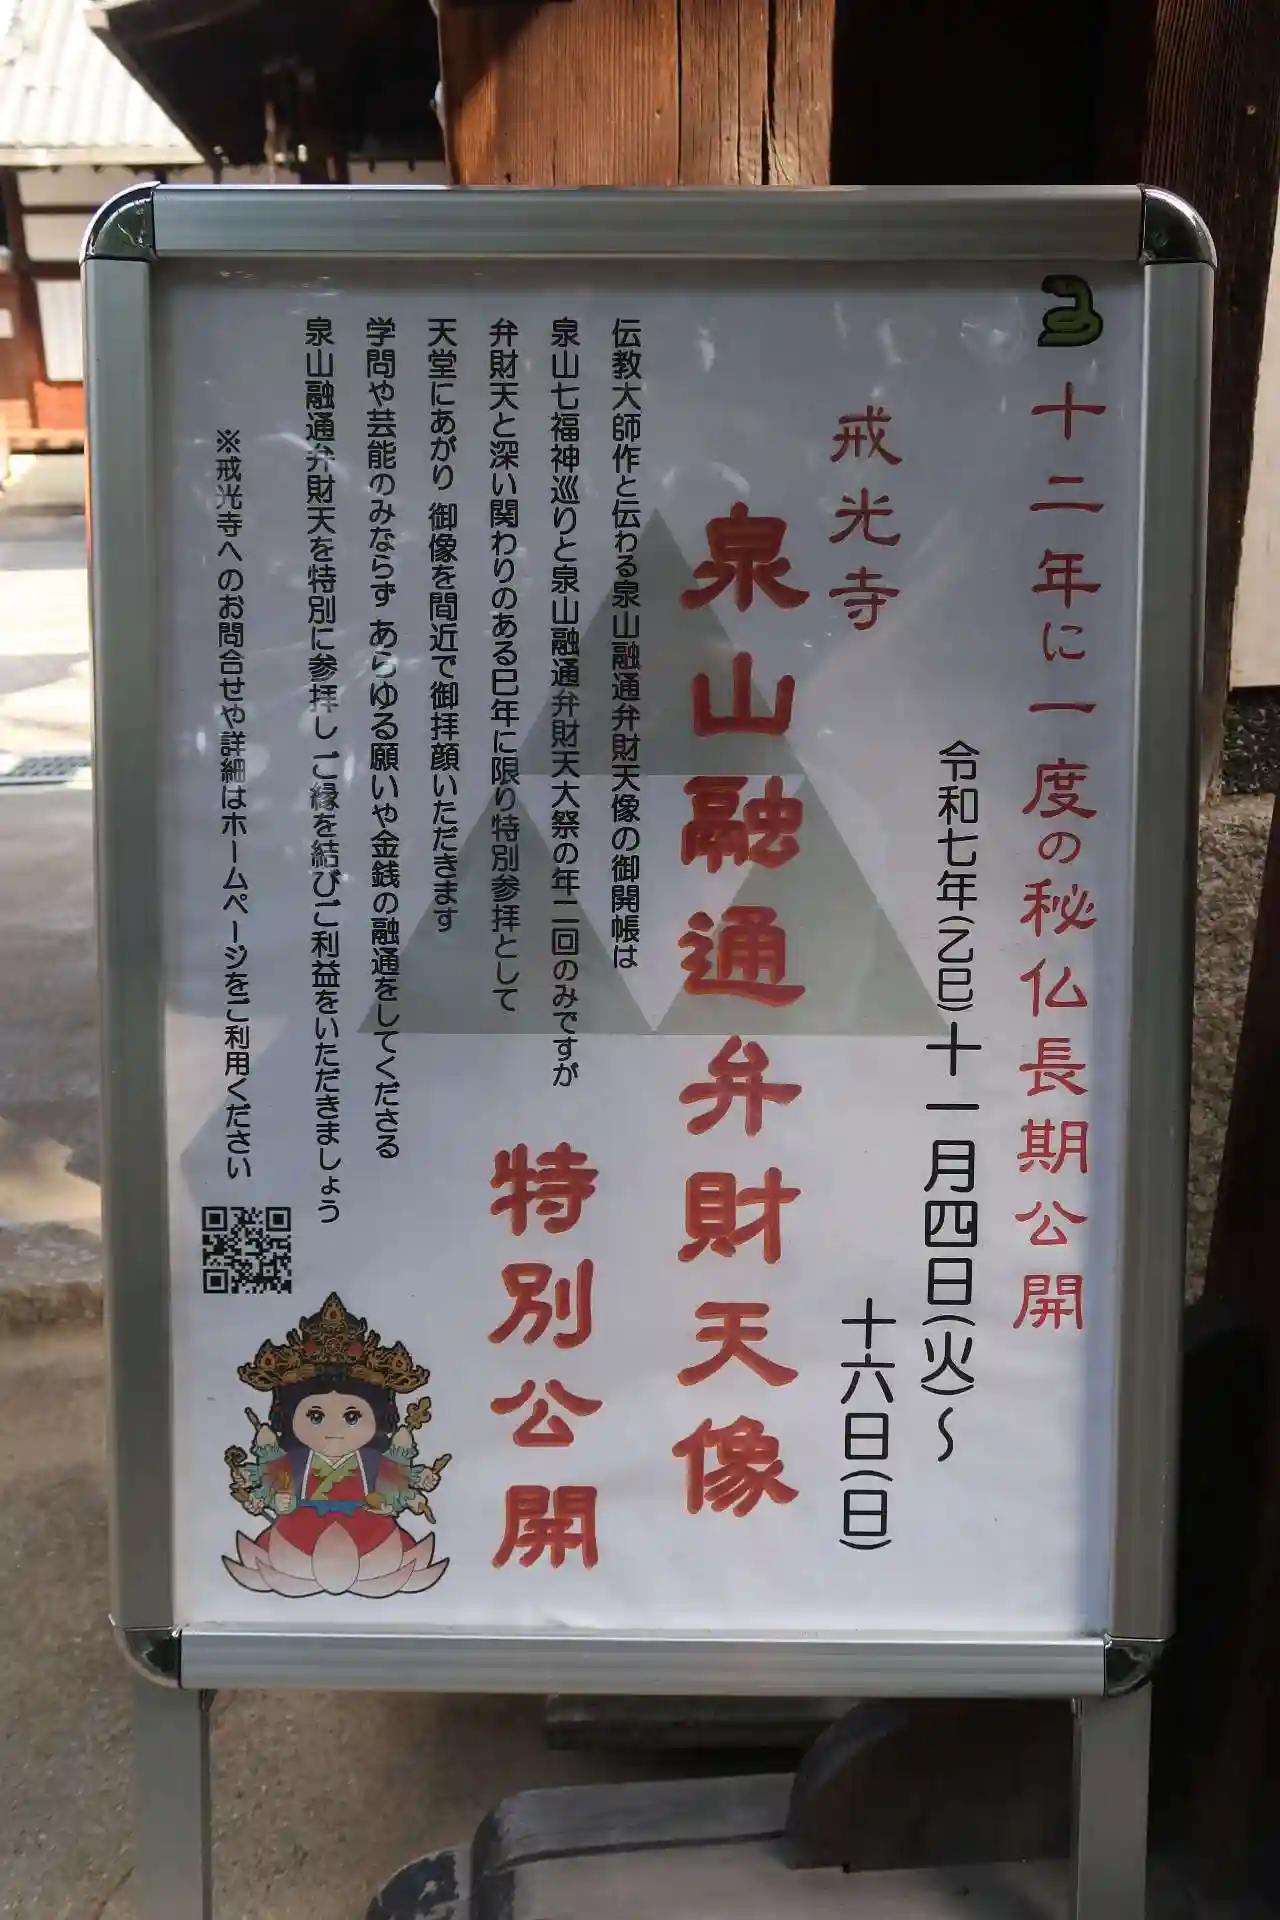 十二年に一度の秘仏長期公開
令和七年(乙巳)十一月四日(火)〜
十六日(日)
戒光寺
泉山融通弁財天像
特別公開
伝教大師作と伝わる泉山融通弁財天像の御開帳は
泉山七福神巡りと泉山融通弁財天大祭の年二回のみですが
弁財天と深い関わりのある巳年に限り特別参拝として
天堂にあがり 御像を間近で御拝顔いただきます
学問や芸能のみならず あらゆる願いや金銭の融通をしてくださる
泉山融通弁財天を特別に参拝し ご縁を結びご利益をいただきましょう
※戒光寺へのお問合せや詳細はホームページをご利用ください